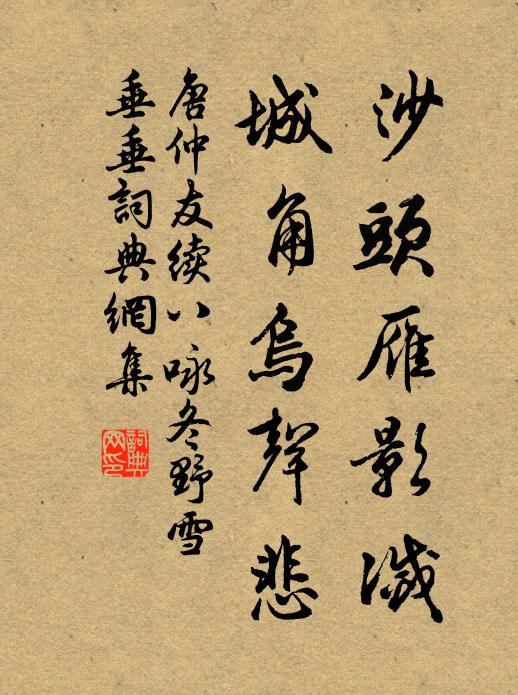 沙頭雁影滅
城角烏聲悲
唐仲友续八咏冬野雪
垂垂詞典網集
詞典
网印